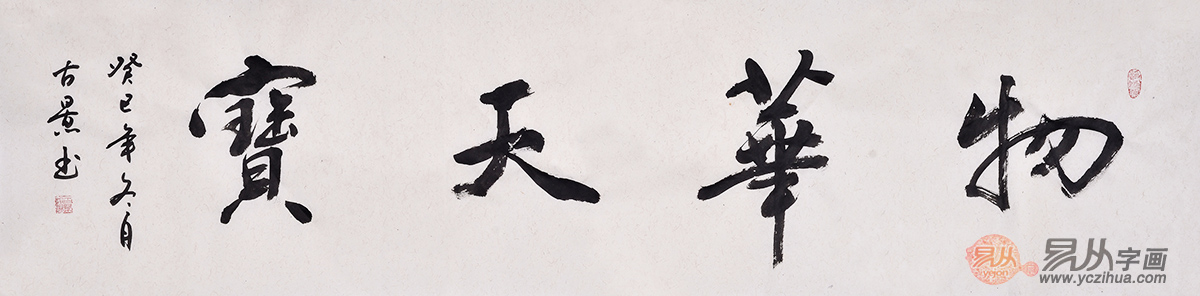 物華天寶
癸巳年冬月
古景书
易从字画
www.yczihua.com
yejon